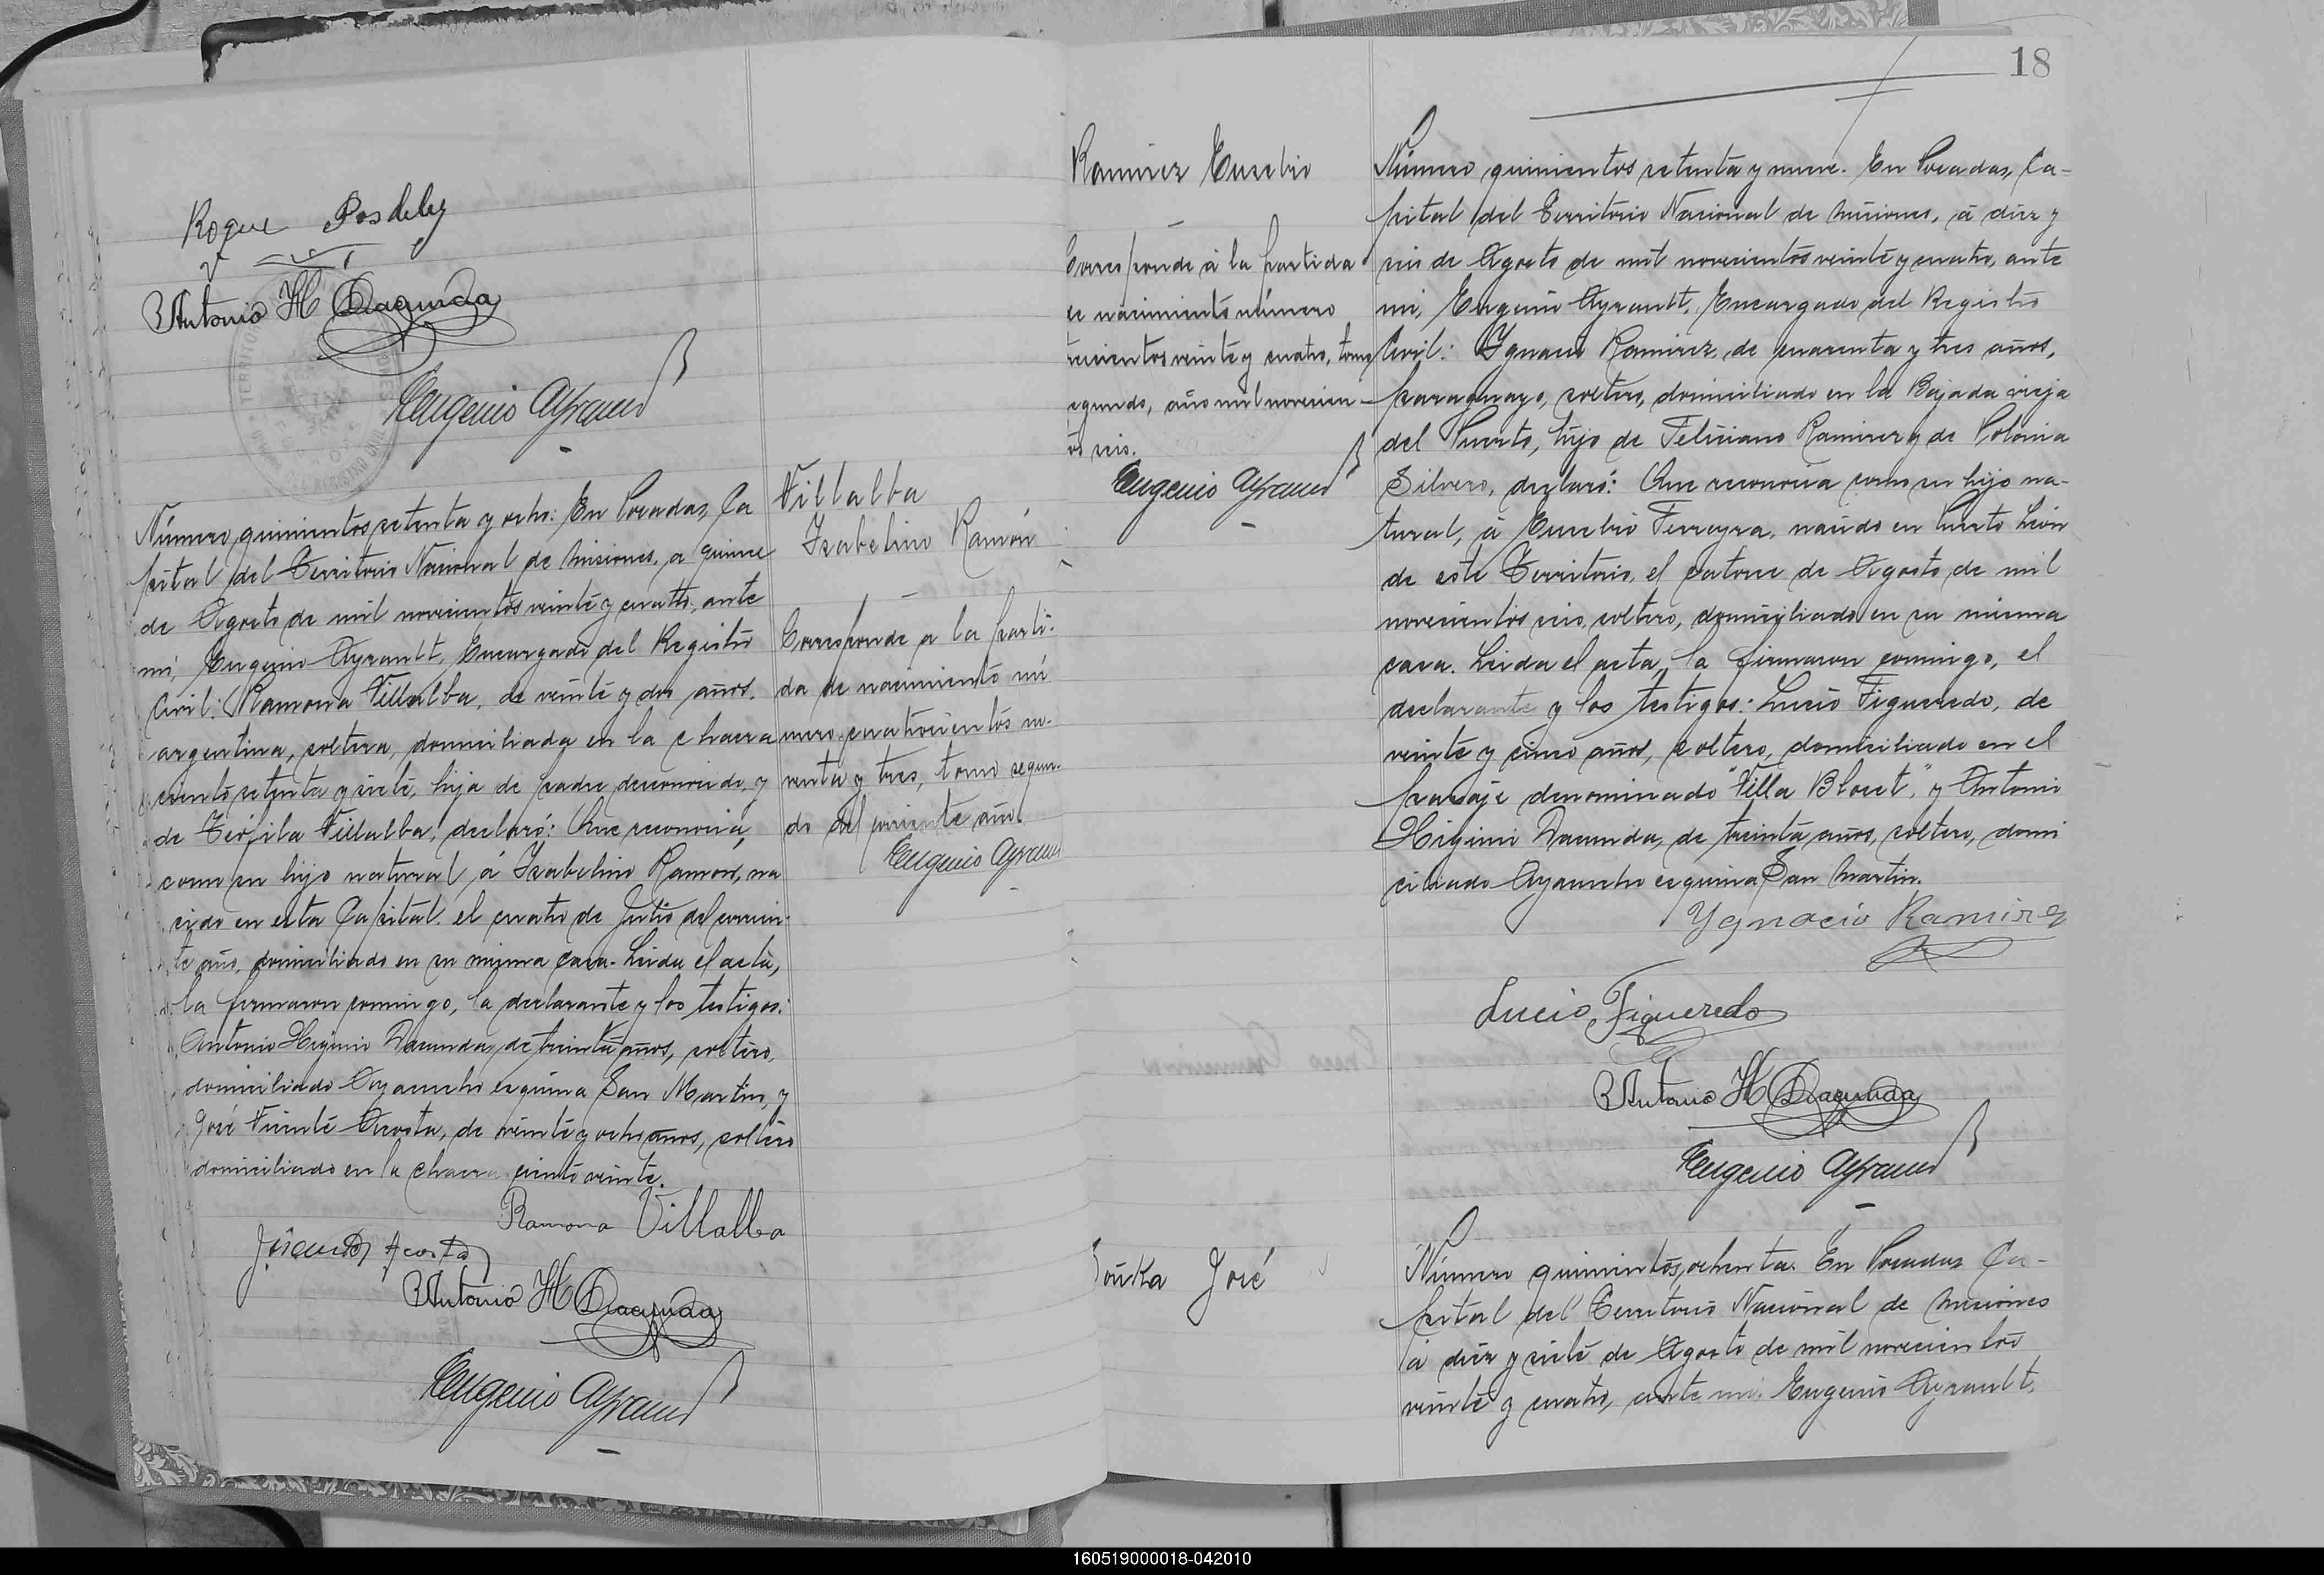 Roque Posdeley
Antonio H Dacunda
Eugenio Ayrault
Número quinientos setenta y ocho: En Posadas, Ca
pital del Territorio Nacional de Misiones, a quince
de Agosto de mil novecientos veinte y cuatro, ante
mi, Eugenio Ayrault, Encargado del Registro
Civil: Ramona Villalba, de veinte y dos años,
argentina, soltera, domiciliada en la chacra
ciento setenta y siete, hija de padre desconocido y
de Teófila Villalba, declaró: Que reconocía,
como su hijo natural á Isabelino Ramon, na
cido en esta Capital el cuatro de Julio del corrien-
te año, domiciliado en su misma casa. Leida el acta,
la firmaron conmigo, la declarante y los testigos:
Antonio Higinio Dacunda, de treinta años, soltero,
domiciliado Ayacucho esquina San Martin, y
José Vicente Acosta, de veinte y ocho años, soltero
domiciliado en la chacra ciento veinte.
Ramona Villalba
Acosta
Antonio H Dacunda
Eugenio Ayrault
Villalba
Isabelino Ramón
Corresponde a la parti-
da de nacimiento nú
mero cuatrocientos no-
venta y tres, tomo segun-
do del corriente año.
Eugenio Ayrault
18
Ramirez Eusebio
Corresponde á la partida
de nacimiento número
trecientos veinte y cuatro, tomo
segundo, año mil novecien-
tos seis.
Eugenio Ayrault
Número quinientos setenta y nueve. En Posadas, Ca-
pital del Territorio Nacional de Misiones, á diez y
seis de Agosto de mil novecientos veinte y cuatro, ante
mi, Eugenio Ayrault, Encargado del Registro
Civil: Ygnacio Ramirez, de cuarenta y tres años,
paraguayo, soltero, domiciliado en la Bajada vieja
del Puerto, hijo de Feliciano Ramirez y de Polonia
Silvero, declaró: Que reconocía como su hijo na-
tural, á Eusebio Ferreyra, nacido en Puerto León
de este Territorio, el catorce de Agosto de mil
novecientos seis, soltero, domiciliado en su misma
casa. Leida el acta, la firmaron conmigo, el
declarante y los testigos: Lucio Figueredo, de
veinte y cinco años, soltero, domiciliado en el
paraje denominado "Villa Blosset", y Antonio
Higinio Dacunda, de treinta años, soltero, domi
ciliado Ayacucho esquina San Martin.
Ygnacio Ramirez
Lucio Figueredo
Antonio H Dacunda
Eugenio Ayrault
José
Número quinientos ochenta. En Posadas Ca-
pital del Territorio Nacional de Misiones
á diez y siete de Agosto de mil novecientos
veinte y cuatro, ante mi, Eugenio Ayrault,
160519000018-042010